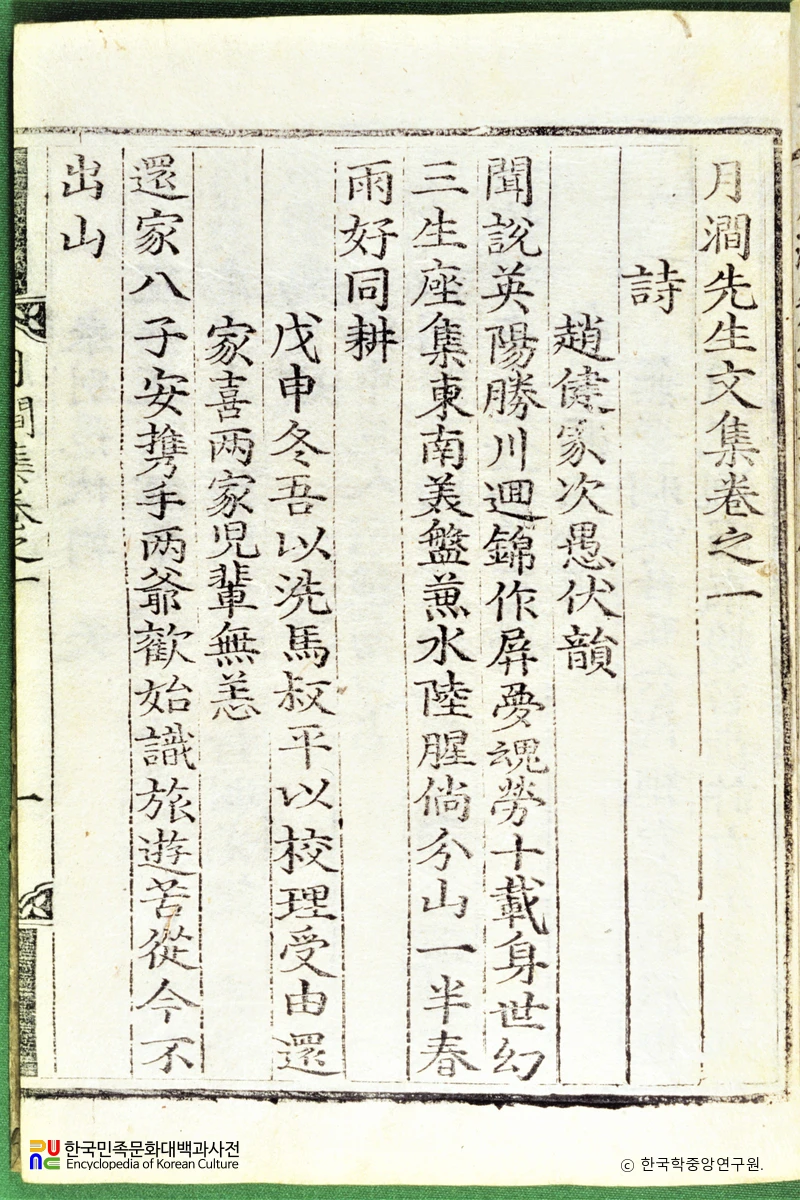 月澗先生文集卷之一
詩
趙健家次愚伏韻
聞說英陽勝川迴錦作屛夢魂勞十載身世幻
三生座集東南美盤蒹水陸腥倘分山一半春
雨好同耕
戊申冬吾以洗馬叔平以校理受由還
家喜两家児輩無恙
還家八子安携手两爺歡始識旅遊苦從今不
出山
月澗集卷之一
一
한국민족문화대백과사전
Encyclopedia of Korean Culture
© 한국학중앙연구원.